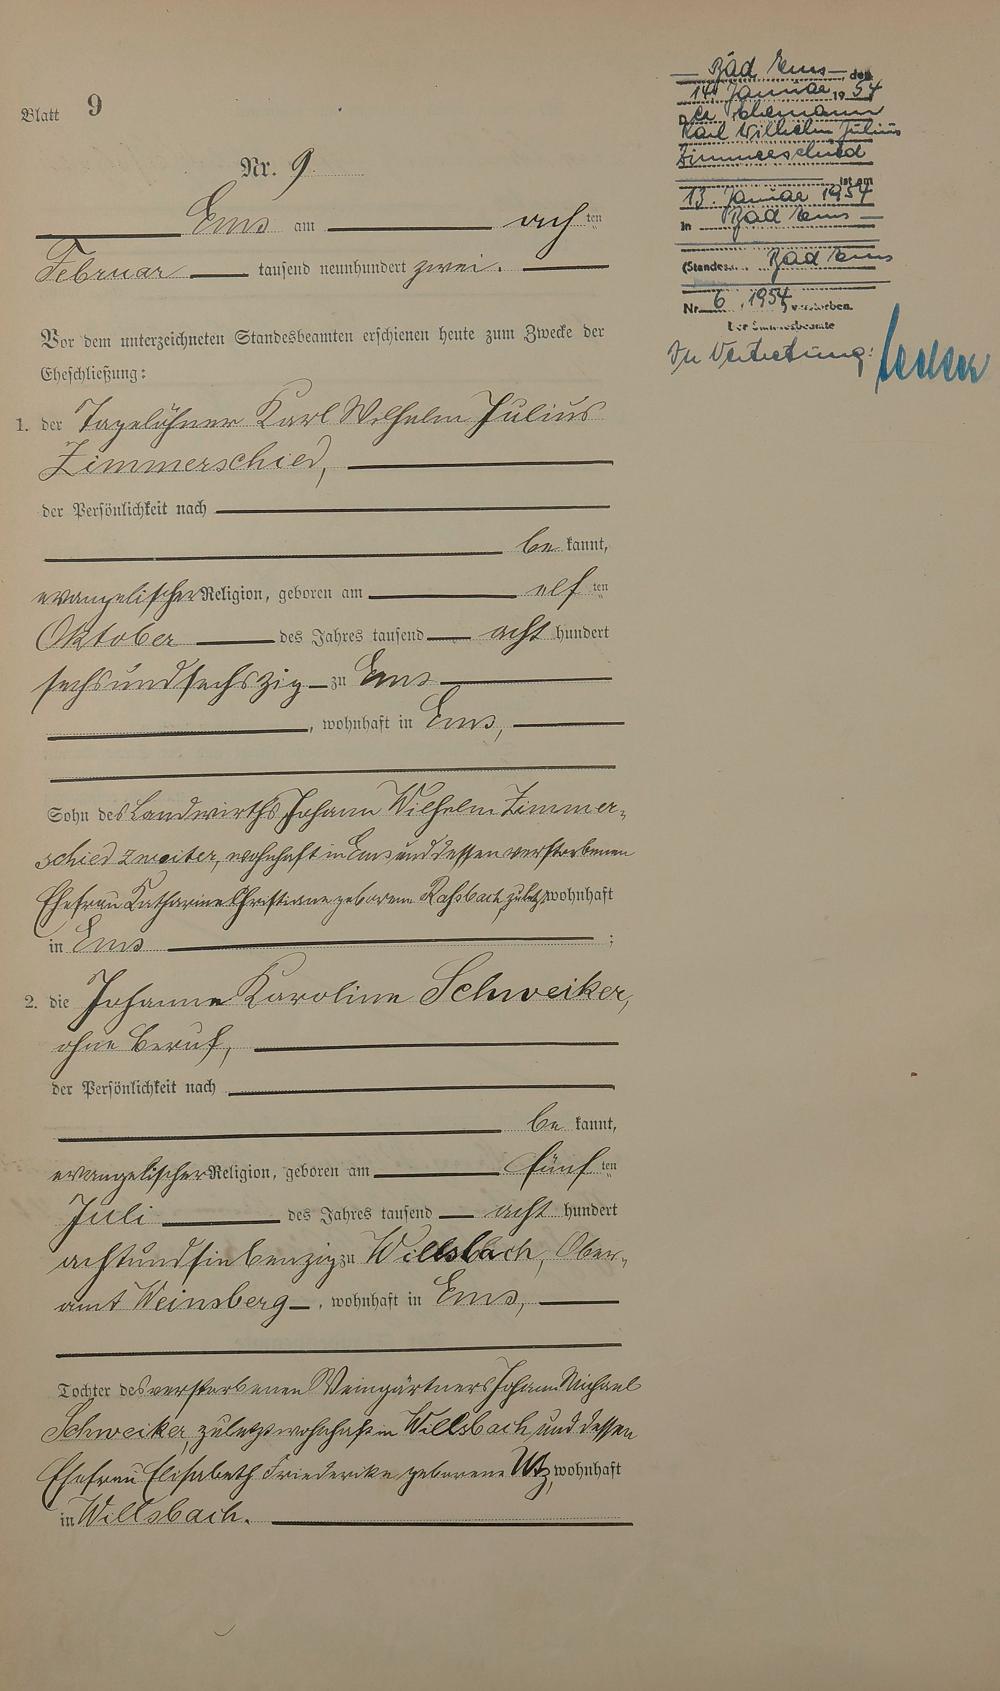 Blatt 9
Nr. 9
Ems am achten
Februar tausend neunhundert zwei.
Vor dem unterzeichneten Standesbeamten erschienen heute zum Zwecke der
Eheschließung:
1. der Tagelöhner Karl Wilhelm Julius
Zimmerschied,
der Persönlichkeit nach
be kannt,
evangelischer Religion, geboren am elf ten
Oktober des Jahres tausend acht hundert
sechsundsechszig zu Ems
, wohnhaft in Ems,
Sohn des Landwirths Johann Wilhelm Zimmer-
schied zweiter, wohnhaft in Ems und dessen verstorbenen
Ehefrau Katharine Christiane geborene zuletzt wohnhaft
in Ems ;
2. die Johanne Karoline Schweiker,
ohne Beruf,
der Persönlichkeit nach
be kannt,
evangelischer Religion, geboren am fünf ten
Juli des Jahres tausend acht hundert
achtundsiebenzig zu Willsbach, Ober-
amt Weinsberg, wohnhaft in Ems,
Tochter des verstorbenen Weingärtners Johann Michael
Schweiker, zuletzt wohnhaft in Willsbach und dessen
Ehefrau Elisabeth Friederike geborene Utz, wohnhaft
in Willsbach.
Bad Ems, den
14. Januar 1954
Der Ehemann
Karl Wilhelm Julius
Zimmerschied
ist am
13. Januar 1954
in Bad Ems
(Standes... Bad Ems
Nr. 6, 1954 verstorben.
Der Standesbeamte
In Vertretung: